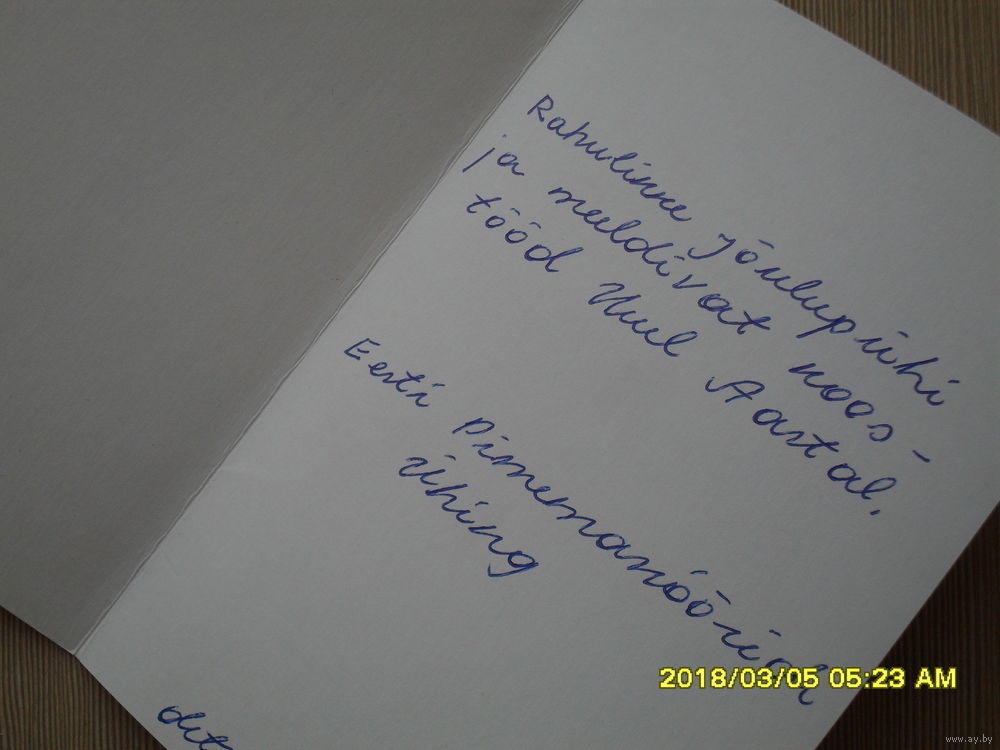 Rahulikke Jõulupühi
ja meeldivat koos-
tööd Uuel Aastal.
Eesti Pimemassöörid
Ühing
det
2018/03/05 05:23 AM
www.ay.by